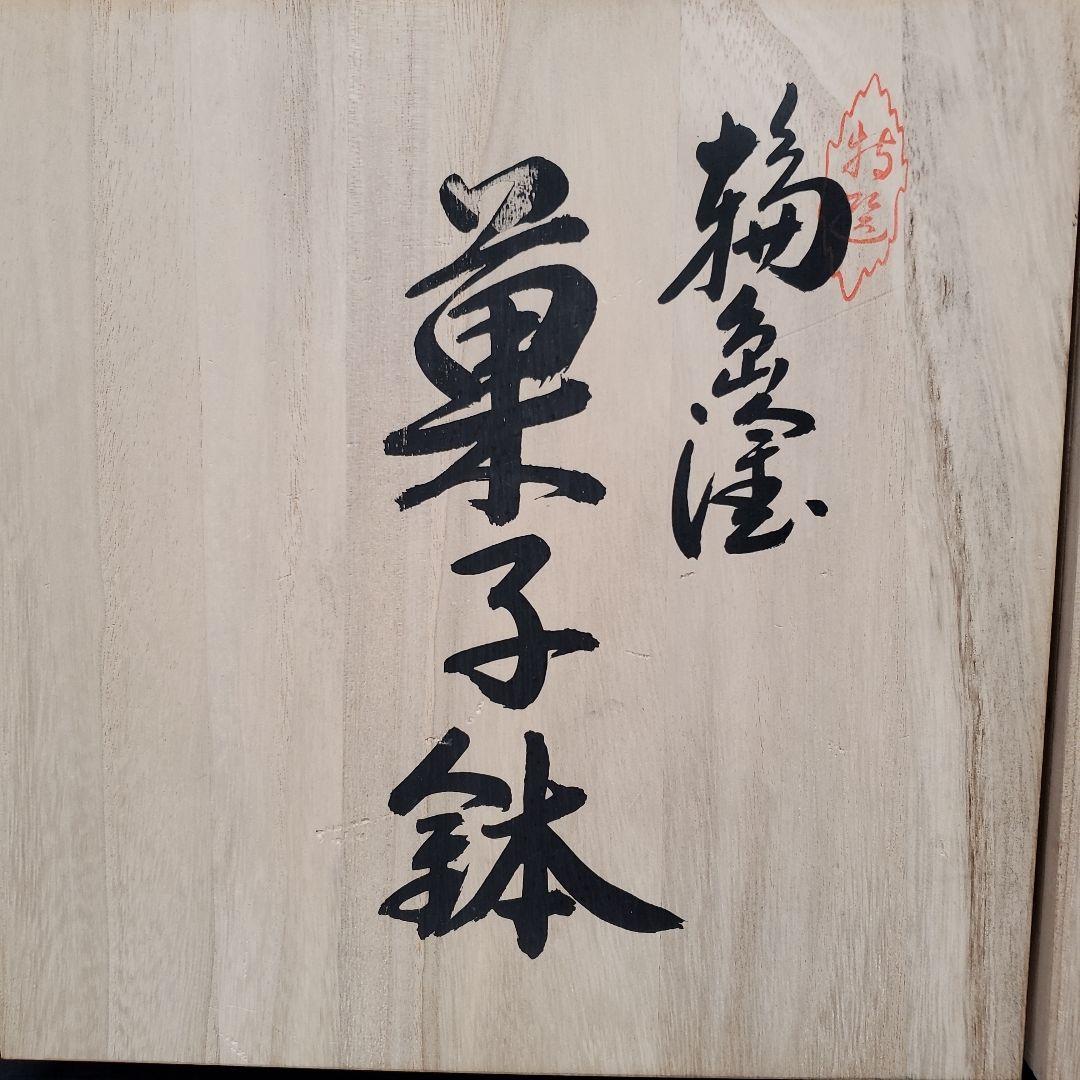 特選
輪島塗
菓子鉢